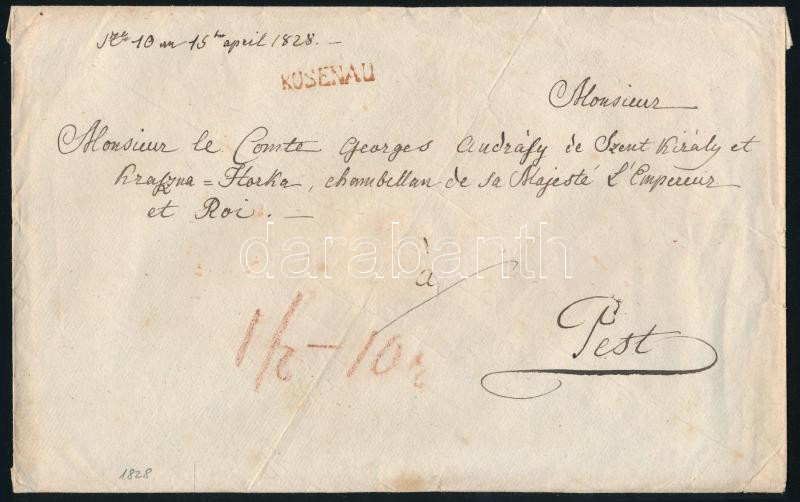 10 15 april 1828.
ROSENAU
Monsieur
Monsieur le Comte Georges Andrásy de Szent Király et
Kraszna = Horka, chambellan de sa Majesté L'Empereur
et Roi.
darabanth
à
Pest
1/2 - 10
1828